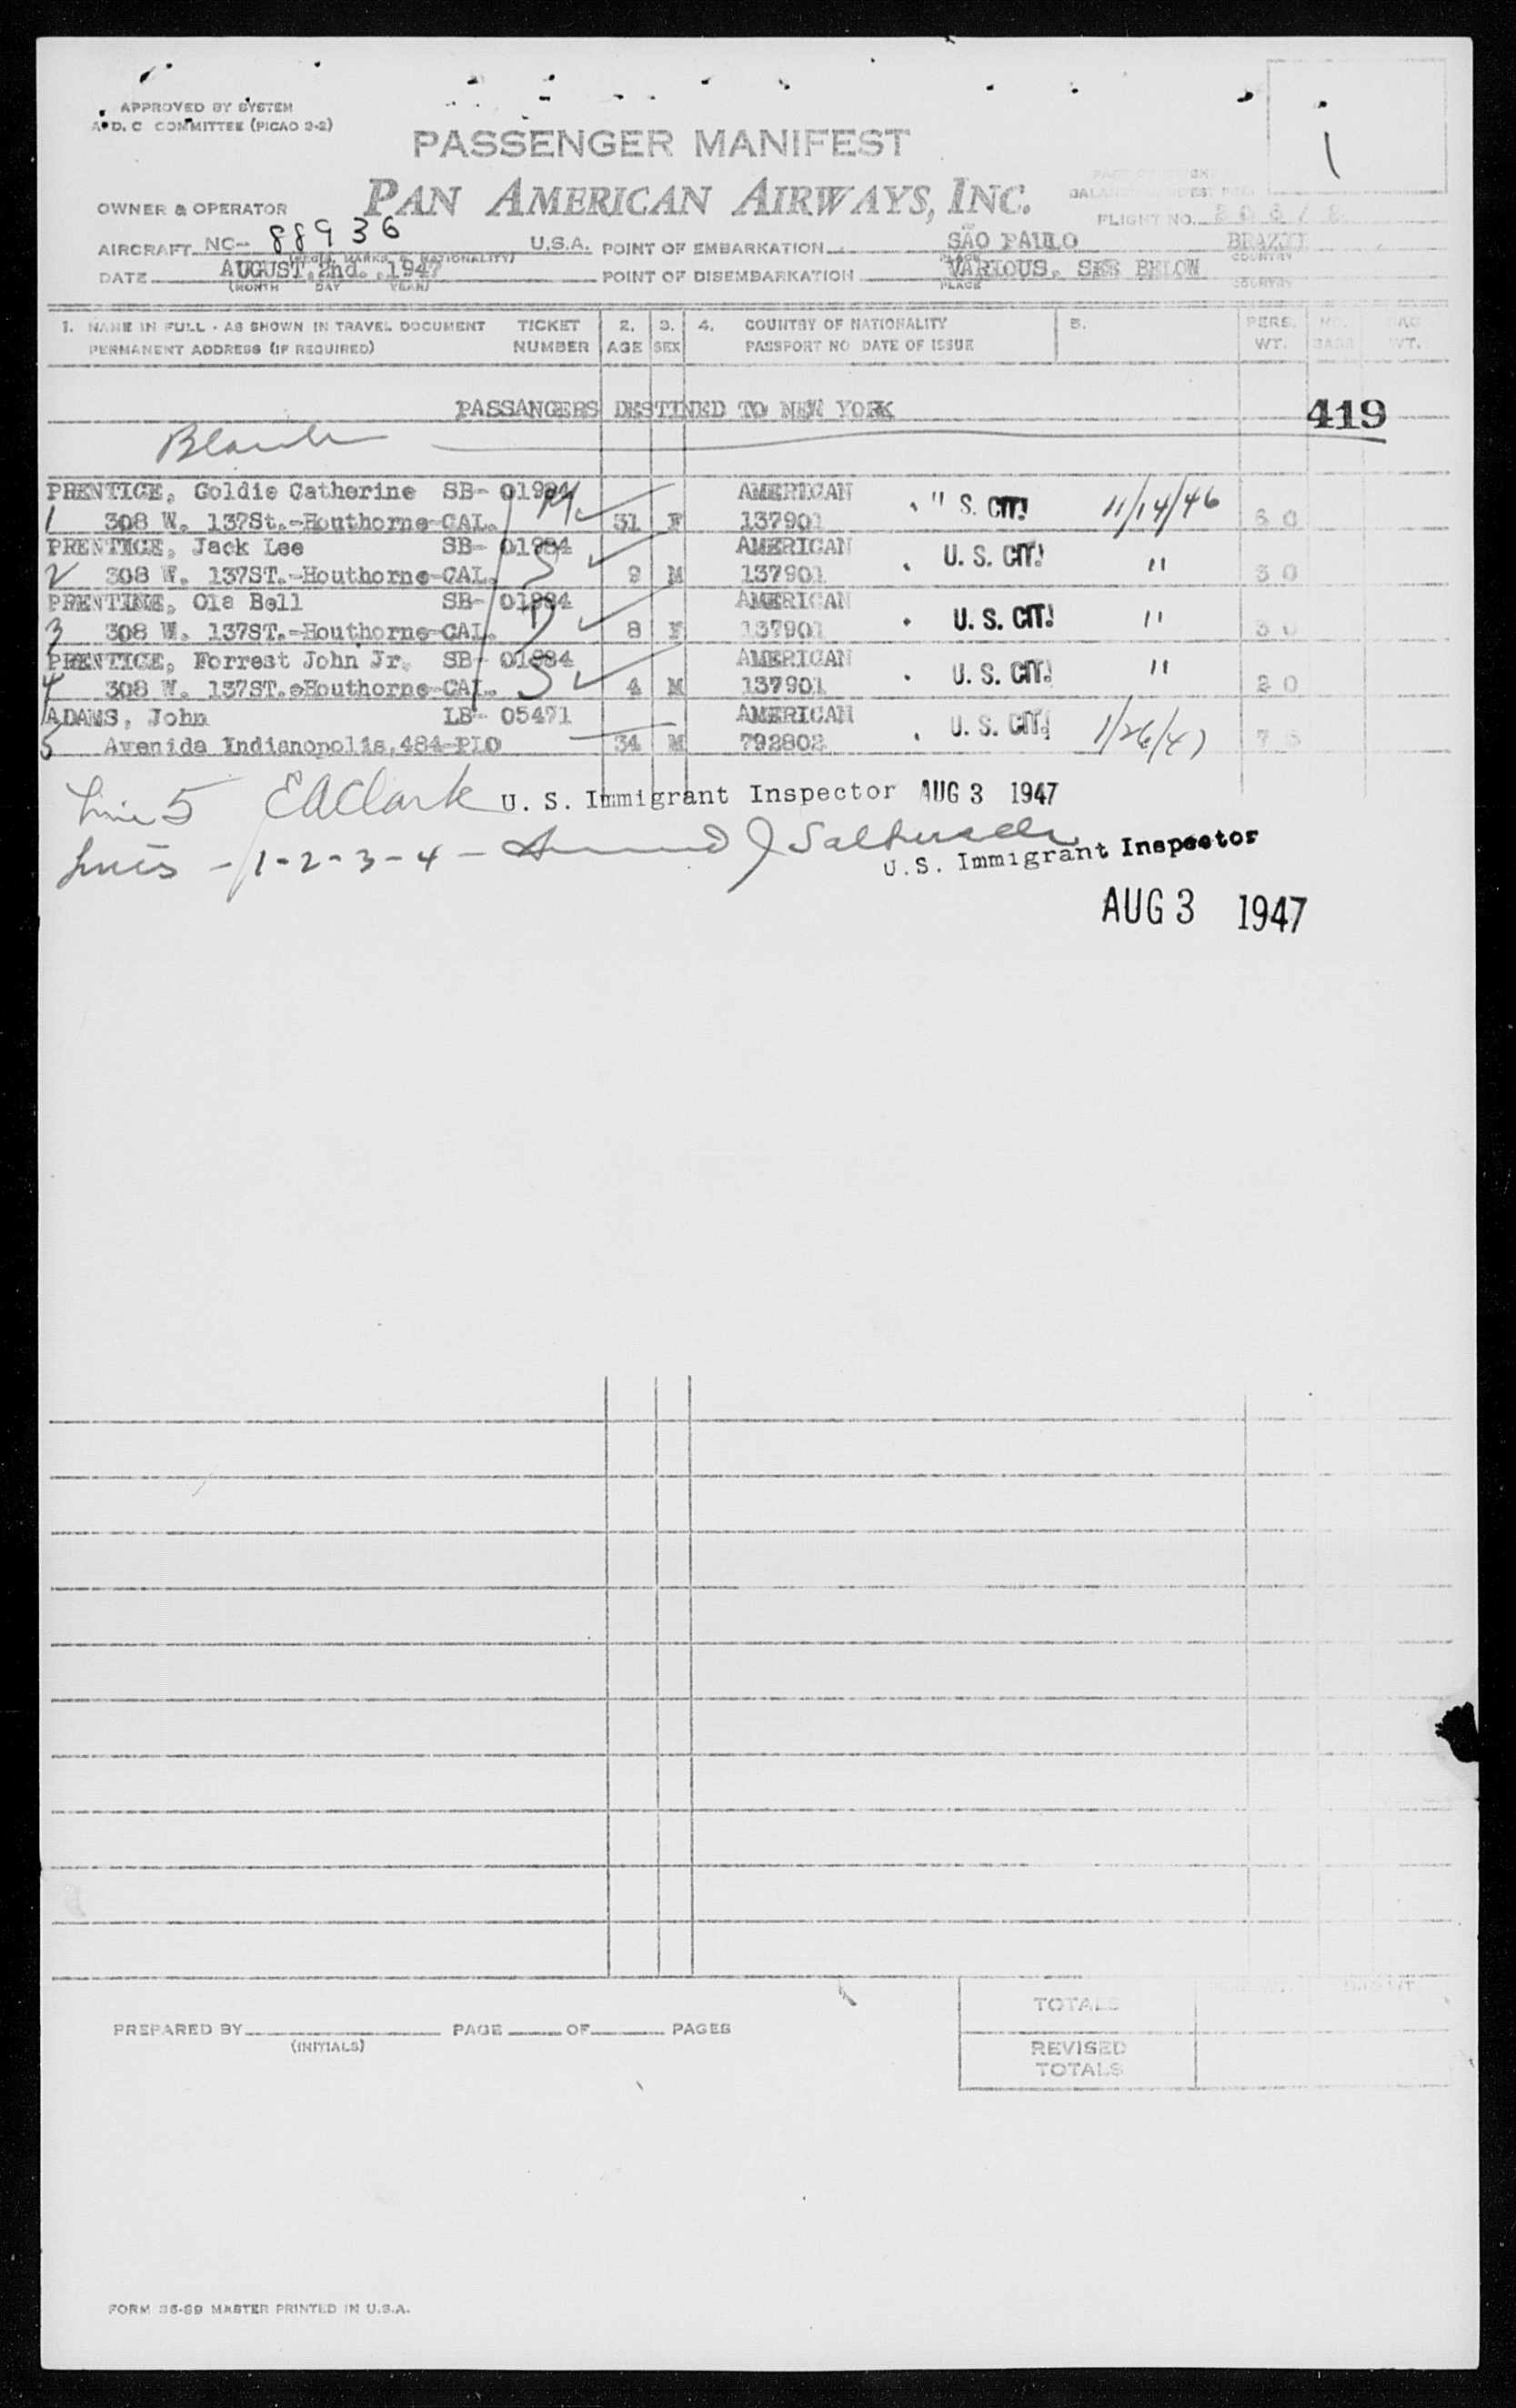 APPROVED BY SYSTEM
A.D.C COMMITTEE (PICAO 3-2)
1
PASSENGER MANIFEST
PAN AMERICAN AIRWAYS, INC.
OWNER & OPERATOR
FLIGHT NO.
AIRCRAFT NC- 88936 U.S.A. POINT OF EMBARKATION SÃO PAULO BRAZIL
(REGIS. MARKS & NATIONALITY) PLACE COUNTRY
DATE AUGUST, 2nd., 1947 POINT OF DISEMBARKATION VARIOUS, SEE BELOW
(MONTH DAY YEAR) PLACE COUNTRY
1. NAME IN FULL - AS SHOWN IN TRAVEL DOCUMENT TICKET 2. 3. 4. COUNTRY OF NATIONALITY 5. PERS. NO. BAG
PERMANENT ADDRESS (IF REQUIRED) NUMBER AGE SEX PASSPORT NO DATE OF ISSUE WT. BAGS WT.
PASSANGERS DESTINED TO NEW YORK 419
PRENTICE, Goldie Catherine SB- 01984 AMERICAN
1 308 W. 137St.-Houthorne-CAL. 31 F 137901 " S. CIT! 11/14/46 60
PRENTICE, Jack Lee SB- 01984 AMERICAN
2 308 W. 137ST.-Houthorne-CAL. 9 M 137901 U. S. CIT! " 30
PRENTINE, Ola Bell SB- 01984 AMERICAN
3 308 W. 137ST.-Houthorne-CAL. 8 F 137901 U. S. CIT! " 30
PRENTICE, Forrest John Jr. SB- 01984 AMERICAN
4 308 W. 137ST.-Houthorne-CAL. 4 M 137901 U. S. CIT! " 20
ADAMS, John LB- 05471 AMERICAN
5 Avenida Indianopolis,484-PLO 34 M 792802 U. S. CIT! 1/26/47 75
Line 5 EAClark U. S. Immigrant Inspector AUG 3 1947
Lines - 1-2-3-4 -
U.S. Immigrant Inspector
AUG 3 1947
TOTALS
PREPARED BY PAGE OF PAGES
(INITIALS)
REVISED
TOTALS
FORM 36-69 MASTER PRINTED IN U.S.A.